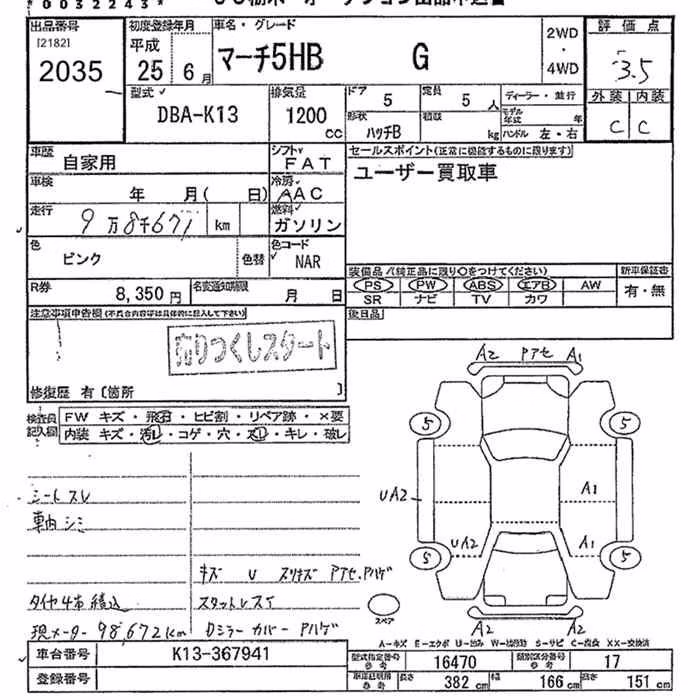 0032243
出品番号 初度登録年月 車名・グレード 2WD・4WD 評価点
[2182] 2035 平成 25年 6月 マーチ5HB G 3.5
型式 DBA-K13 排気量 1200 cc ドア 5 定員 5人 ディーラー・並行 外装 内装
形状 ハッチB 積載 kg モデル年式 年 ハンドル 左・右 C C
車歴 自家用 シフト FAT セールスポイント(正常に機能するものに限ります)
車検 年 月( 日) 冷房 AAC ユーザー買取車
走行 9万8千671 km 燃料 ガソリン
色 ピンク 色替 色コード NAR
装備品(純正品に限り○をつけてください) 新車保証書
R券 8,350円 名変通知期限 月 日 PS PW ABS エアB AW 有・無
SR ナビ TV カワ
注意事項申告欄(不具合内容等は具体的に記入して下さい) 後日品
売りつくしスタート
修復歴 有〔箇所 〕
検査員記入欄 FW キズ・飛石・ヒビ割・リペア跡・×要
内装 キズ・汚レ・コゲ・穴・スレ・キレ・破レ
A2 Pアセ A1
5 5
UA2 A1
UA2 A1
5 5
A2 A2
シートスレ
車内シミ
キズ U スリキズ Pアセ,ハゲ
タイヤ4本積込 スタットレス
現メーター 98,672km Dミラーカバーハゲ
スペア
A-キズ E-エクボ U-凹み W-補修跡 S-サビ C-腐食 XX-交換済
車台番号 K13-367941 型式指定番号 参考 16470 類別区分番号 参考 17
登録番号 車庫証明用 参考 長さ 382 cm 幅 166 cm 高さ 151 cm